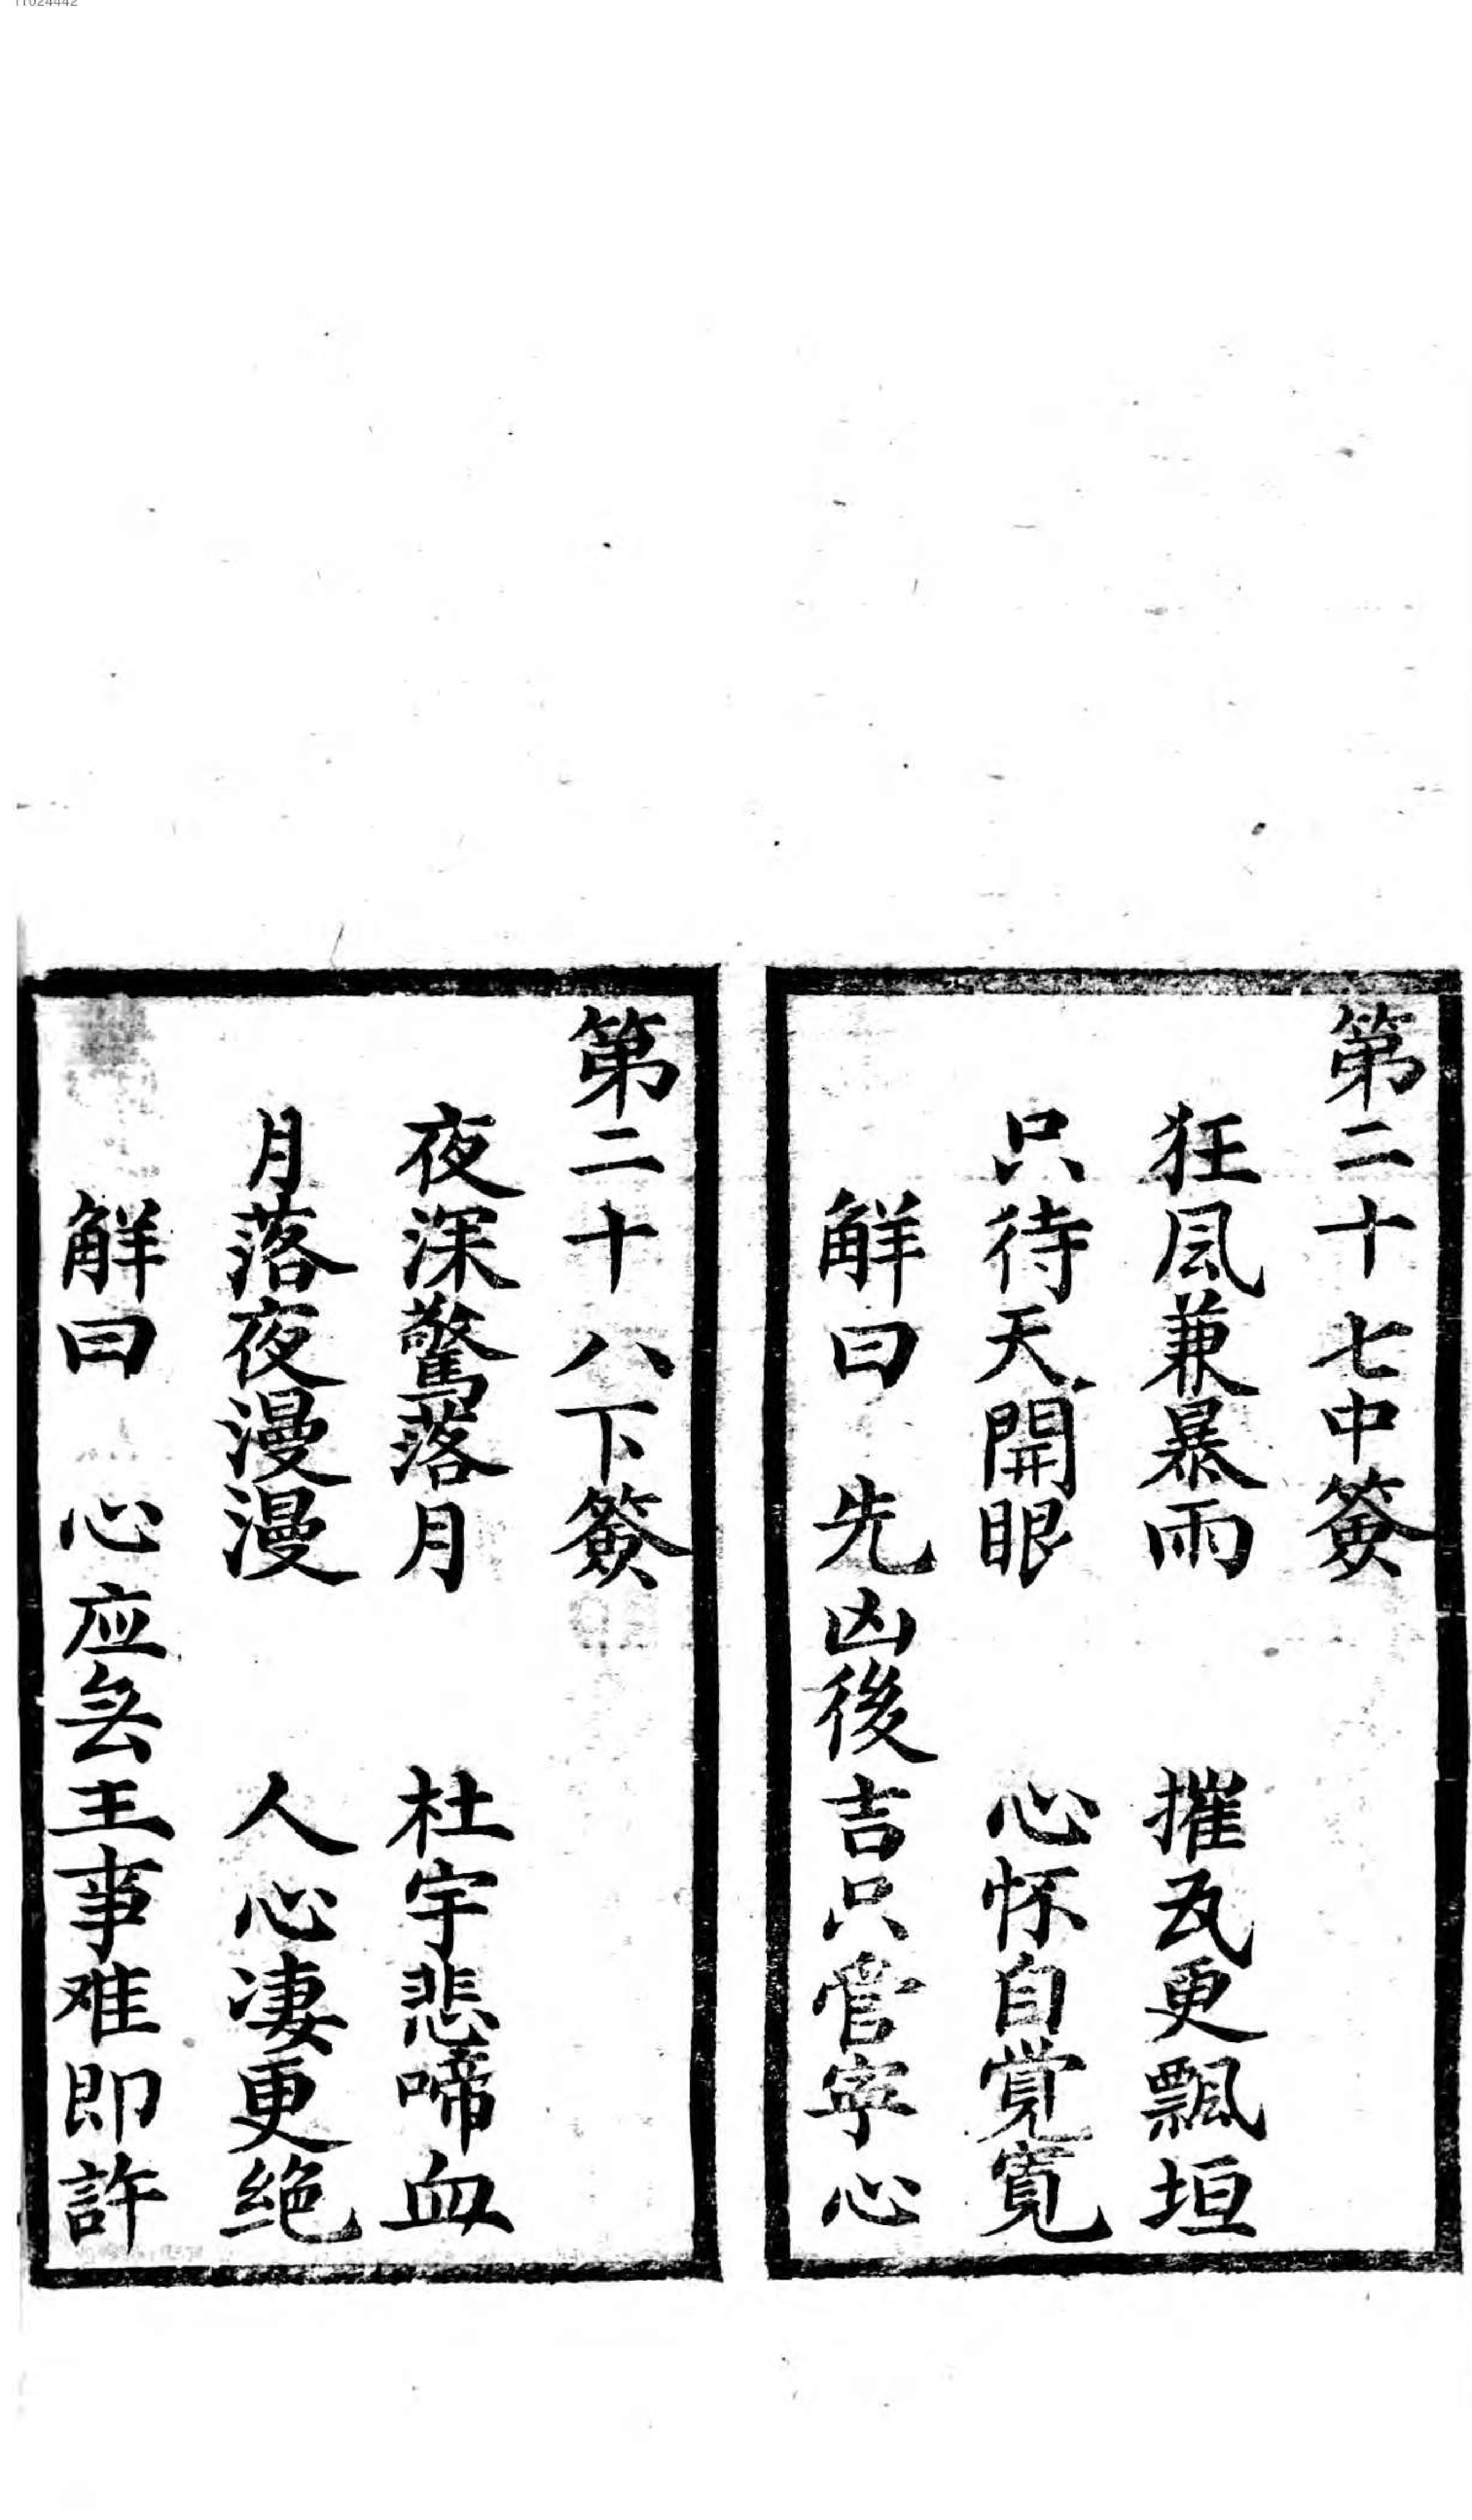 第二十七中簽
狂風兼暴雨　摧瓦更飄垣
只待天開眼　心怀自覚寬
解曰　先凶後吉只管寧心
第二十八下簽
夜深驚落月　杜宇悲啼血
月落夜漫漫　人心凄更绝
解曰　心应無主事难即許